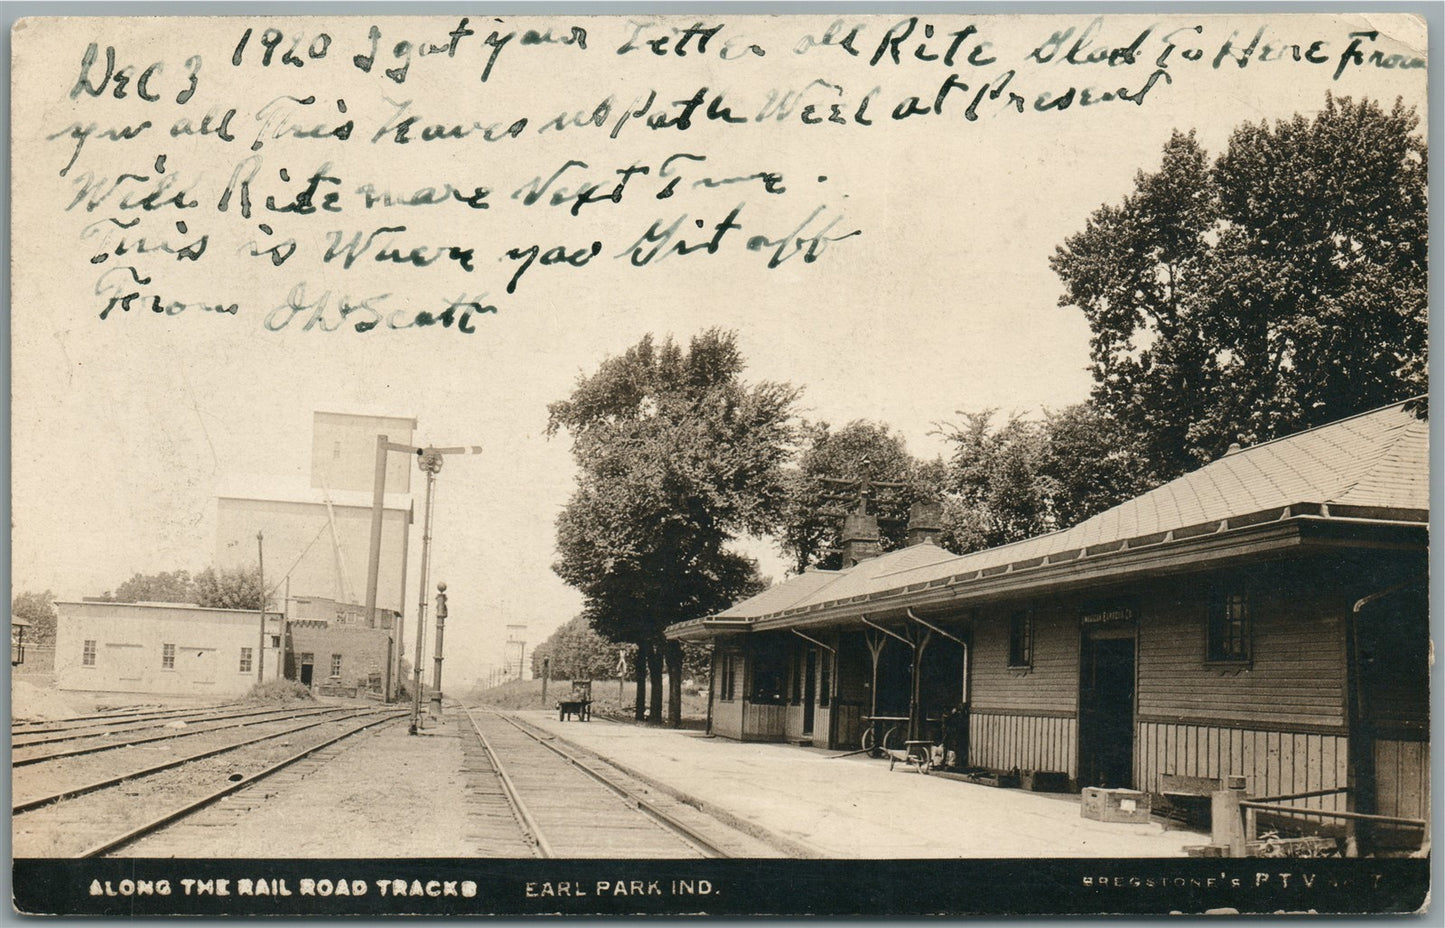 Dec 3 1920 I got your Letter all Rite Glad To Here From
you all This Leaves us Path Well at Present
Will Rite more Next Time.
This is Where you Git off
From J W Scott
AMERICAN EXPRESS CO.
ALONG THE RAIL ROAD TRACKS EARL PARK IND.
BREGSTONE'S P T V